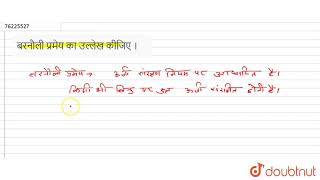 76225527
बरनौली प्रमेय का उल्लेख कीजिए ।
बरनौली प्रमेय → ऊर्जा संरक्षण नियम पर आधारित है।
किसी भी बिन्दु पर कुल ऊर्जा संरक्षित होती है।
doubtnut